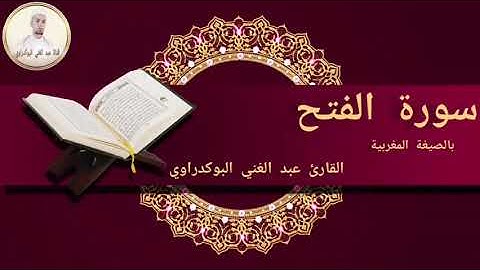 سورة الفتح
بالصيغة المغربية
القارئ عبد الغني البوكدراوي
قناة عبد الغني البوكدراوي